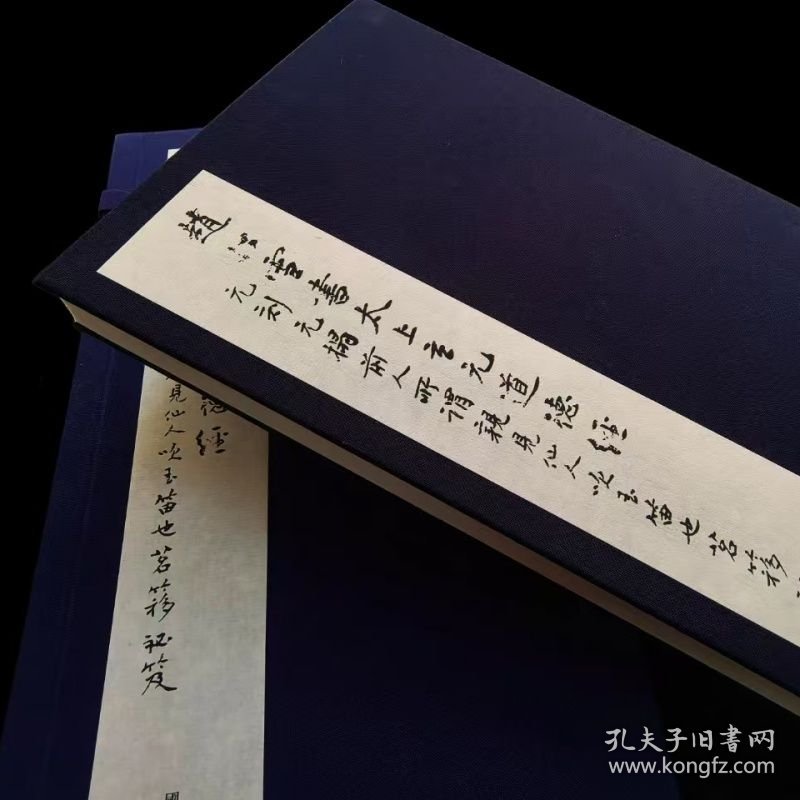 趙松雪書太上玄元道德經
元刻元搨前人所謂親見仙人吹玉笛也茗簃
德經
見仙人吹玉笛也茗簃祕笈
國
孔夫子旧书网
www.kongfz.com